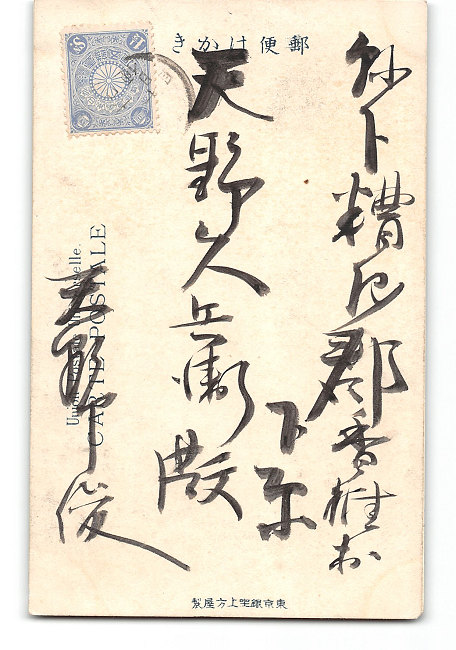 郵便はかき
縣下糟屋郡香椎村
下原
天野久兵衛殿
天野
俊
CARTE POSTALE
東京銀座上方屋製